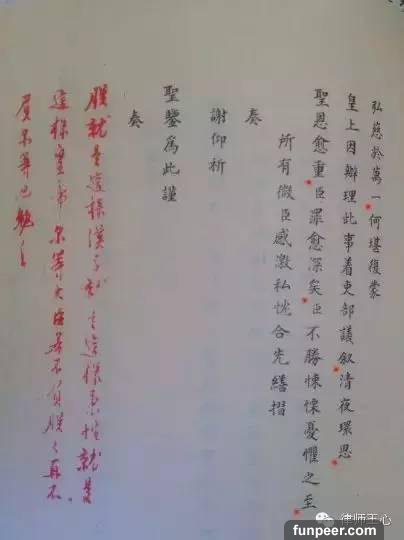 弘慈於萬一何堪復蒙
皇上因辦理此事着吏部議叙清夜環思
聖恩愈重臣罪愈深矣臣不勝悚慄憂懼之至
所有微臣感激私忱合先繕摺
奏
謝仰祈
聖鑒為此謹
奏
朕就是這樣漢子就是這樣秉性就是
這樣皇帝尔等大臣若不負朕々再不
負尔等也勉之
律师王心
funpeer.com